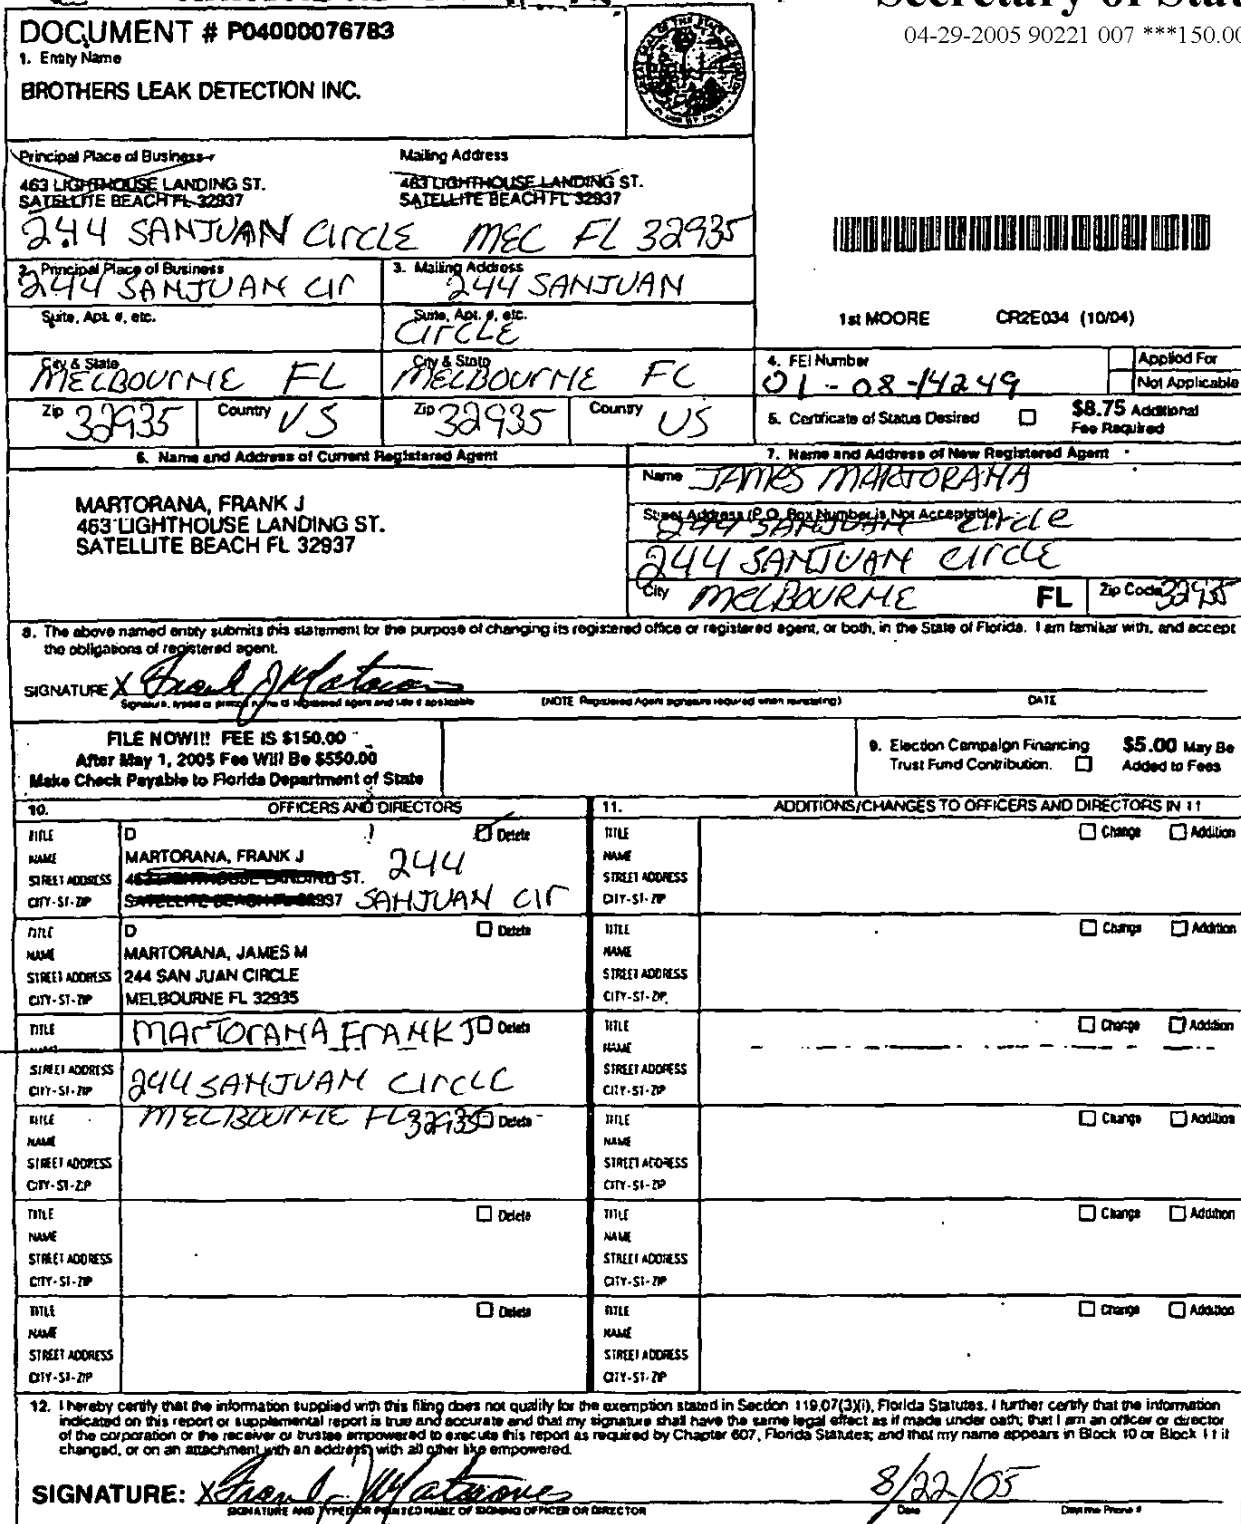 Secretary of Stat
DOCUMENT # P04000076783
04-29-2005 90221 007 ***150.00
1. Entity Name
BROTHERS LEAK DETECTION INC.
Principal Place of Business
Mailing Address
463 LIGHTHOUSE LANDING ST.
SATELLITE BEACH FL 32937
463 LIGHTHOUSE LANDING ST.
SATELLITE BEACH FL 32937
244 SANJUAN CIrCLE MEC FL 32935
2. Principal Place of Business
244 SANJUAN CIr
3. Mailing Address
244 SANJUAN
Suite, Apt. #, etc.
Suite, Apt. #, etc.
CIrCLE
1st MOORE CR2E034 (10/04)
City & State
MELBOUrNE FL
City & State
MELBOUrNE FL
4. FEI Number
01-08-14249
Applied For
Not Applicable
Zip 32935
Country US
Zip 32935
Country US
5. Certificate of Status Desired
$8.75 Additional
Fee Required
6. Name and Address of Current Registered Agent
7. Name and Address of New Registered Agent
MARTORANA, FRANK J
463 LIGHTHOUSE LANDING ST.
SATELLITE BEACH FL 32937
Name JAMES MARTORANA
Street Address (P.O. Box Number is Not Acceptable)
244 SANJUAN CIrcle
244 SANJUAN CIrCLE
City MELBOURNE FL Zip Code 32935
8. The above named entity submits this statement for the purpose of changing its registered office or registered agent, or both, in the State of Florida. I am familiar with, and accept
the obligations of registered agent.
SIGNATURE X Frank J Martorana
Signature, typed or printed name of registered agent and title if applicable (NOTE Registered Agent signature required when reinstating) DATE
FILE NOW!!! FEE IS $150.00
After May 1, 2005 Fee Will Be $550.00
Make Check Payable to Florida Department of State
9. Election Campaign Financing
Trust Fund Contribution.
$5.00 May Be
Added to Fees
10. OFFICERS AND DIRECTORS
11. ADDITIONS/CHANGES TO OFFICERS AND DIRECTORS IN 11
TITLE D Delete
NAME MARTORANA, FRANK J 244
STREET ADDRESS 463 LIGHTHOUSE LANDING ST.
CITY-ST-ZIP SATELLITE BEACH FL 32937 SANJUAN CIr
TITLE Change Addition
NAME
STREET ADDRESS
CITY-ST-ZIP
TITLE D Delete
NAME MARTORANA, JAMES M
STREET ADDRESS 244 SAN JUAN CIRCLE
CITY-ST-ZIP MELBOURNE FL 32935
TITLE Change Addition
NAME
STREET ADDRESS
CITY-ST-ZIP
TITLE MArTOrANA FrANK J Delete
NAME
STREET ADDRESS
CITY-ST-ZIP 244 SANJUAN CIrCLE
TITLE Change Addition
NAME
STREET ADDRESS
CITY-ST-ZIP
TITLE MELBOUrNE FL 32935 Delete
NAME
STREET ADDRESS
CITY-ST-ZIP
TITLE Change Addition
NAME
STREET ADDRESS
CITY-ST-ZIP
TITLE Delete
NAME
STREET ADDRESS
CITY-ST-ZIP
TITLE Change Addition
NAME
STREET ADDRESS
CITY-ST-ZIP
TITLE Delete
NAME
STREET ADDRESS
CITY-ST-ZIP
TITLE Change Addition
NAME
STREET ADDRESS
CITY-ST-ZIP
12. I hereby certify that the information supplied with this filing does not qualify for the exemption stated in Section 119.07(3)(i), Florida Statutes. I further certify that the information
indicated on this report or supplemental report is true and accurate and that my signature shall have the same legal effect as if made under oath; that I am an officer or director
of the corporation or the receiver or trustee empowered to execute this report as required by Chapter 607, Florida Statutes; and that my name appears in Block 10 or Block 11 if
changed, or on an attachment with an address, with all other like empowered.
SIGNATURE: X Frank J Martorana 8/22/05
SIGNATURE AND TYPED OR PRINTED NAME OF SIGNING OFFICER OR DIRECTOR Date Daytime Phone #